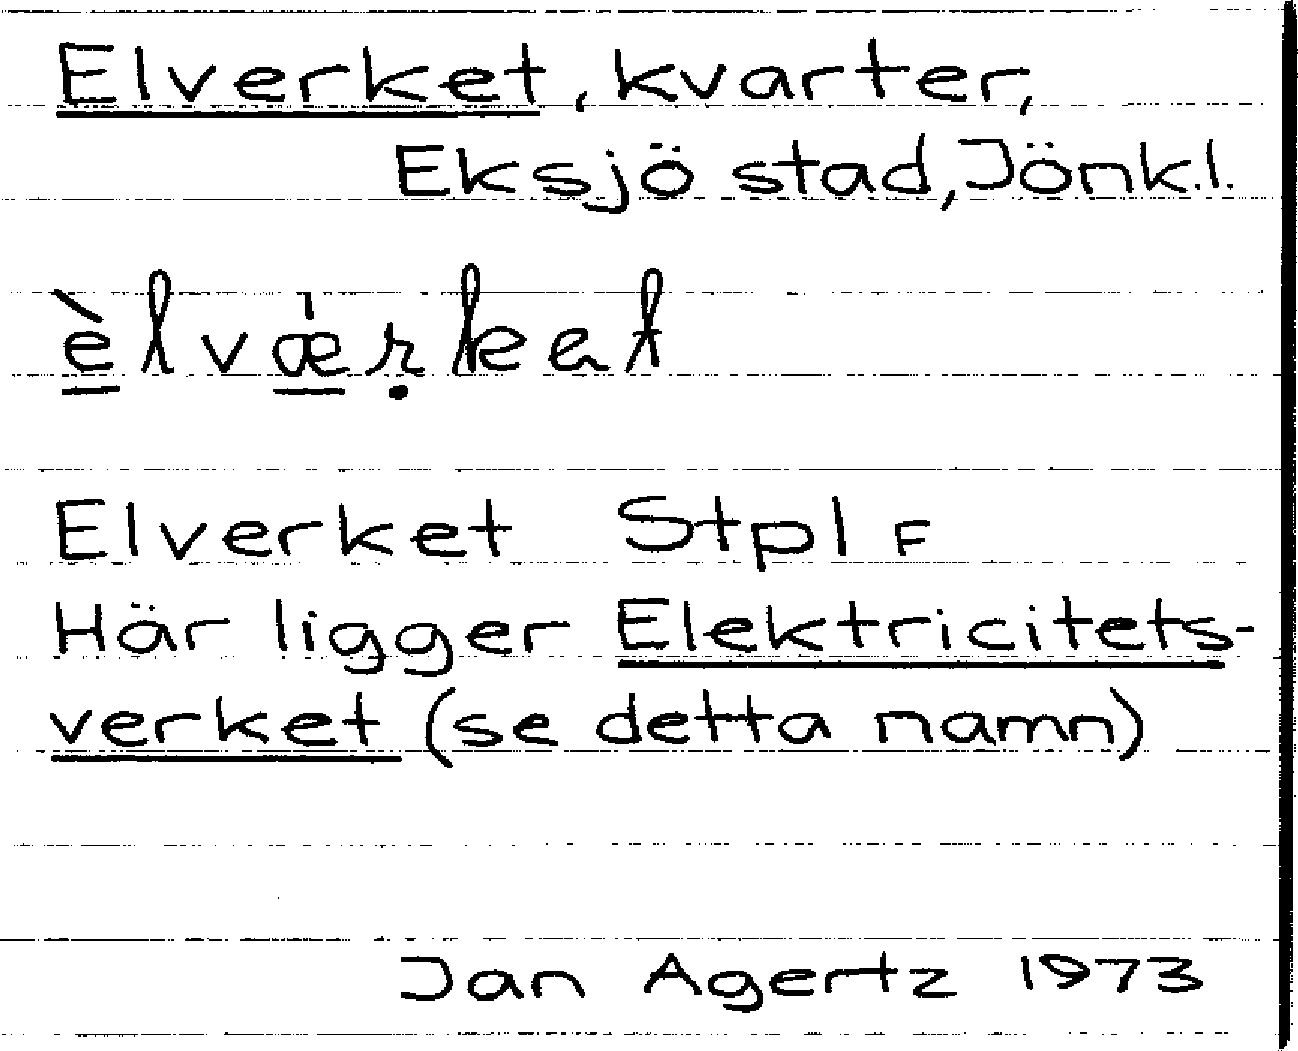 Elverket, kvarter,
Eksjö stad, Jönk.l.
èlvæ̍ṛkət
Elverket Stpl F
Här ligger Elektricitets-
verket (se detta namn)
Jan Agertz 1973